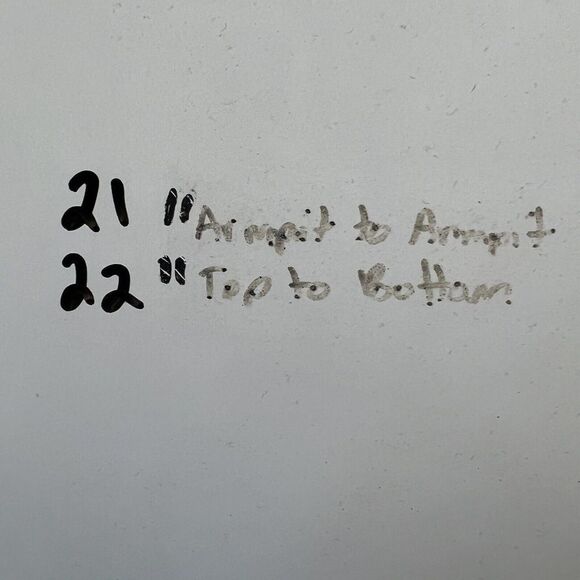 21 " Armpit to Armpit
22 " Top to Bottom